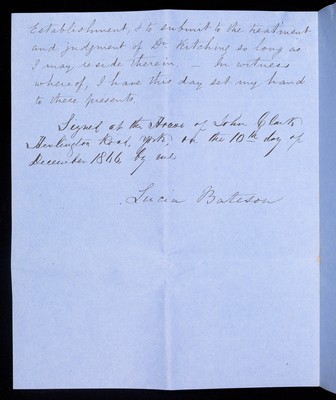 Establishment, & to submit to the treatment
and judgment of Dr Kitching so long as
I may reside therein. – In witness
whereof, I have this day set my hand
to these presents.
Signed at the House of John Clark
Heslington Road, York, on the 10th day of
December 1866 by me
Lucia Bateson